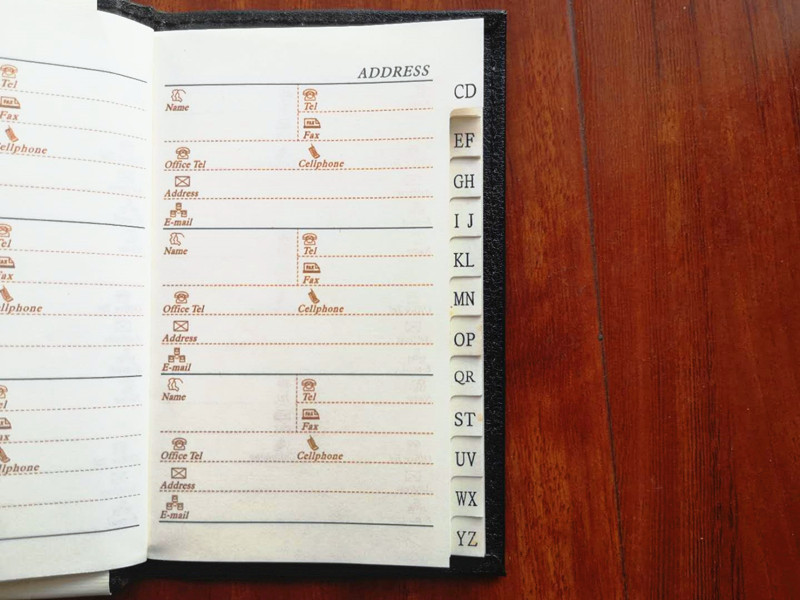 Tel
Fax
Cellphone
Tel
Fax
Cellphone
Tel
Fax
Cellphone
ADDRESS
Name Tel
FAX
Fax
Office Tel Cellphone
Address
E-mail
Name Tel
FAX
Fax
Office Tel Cellphone
Address
E-mail
Name Tel
FAX
Fax
Office Tel Cellphone
Address
E-mail
CD
EF
GH
I J
KL
MN
OP
QR
ST
UV
WX
YZ